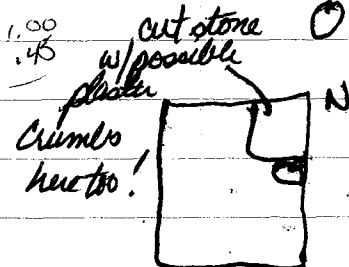 1.00
.45
cut stone
w/possible
plaster
Crumbs
here too!
N